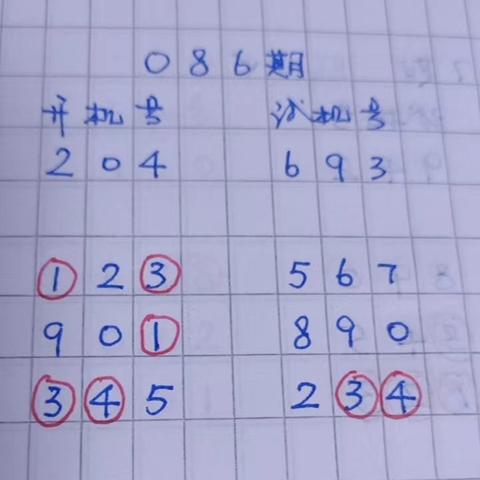 086期
开机号 试机号
204 693
①2③ 567
90① 890
③④5 2③④